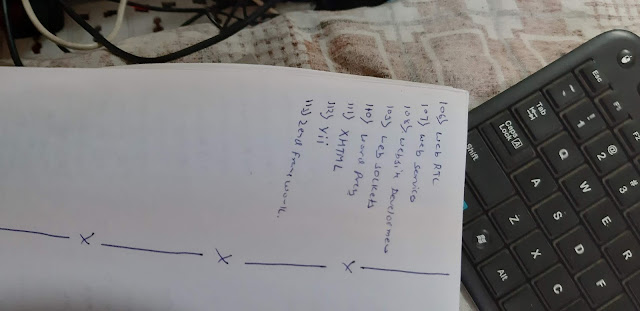 106) Web RTC
107) Web service
108) Website Development
109) Web sockets
110) Word Press
111) XHTML
112) Yii
113) Zend framework.
—— X —— X —— X ——
Esc
F1
F2
~
!
1
@
2
#
3
Tab
Q
W
E
Caps Lock
A
S
D
F
Shift
Z
X
C
Alt
R